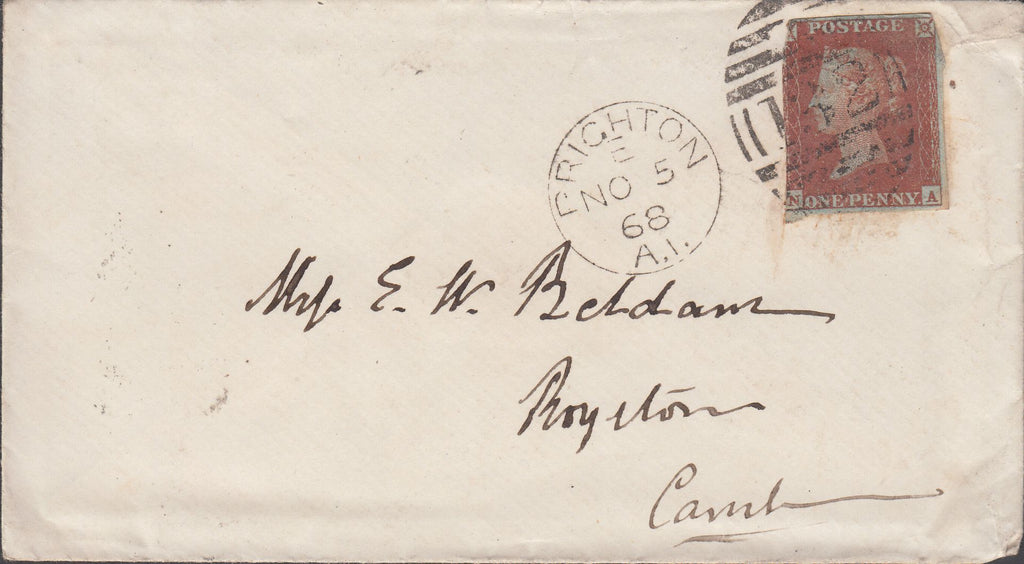 POSTAGE
N ONE PENNY A
BRIGHTON
E
NO 5
68
A.I.
Mrs. E. W. Beldam
Royston
Camb